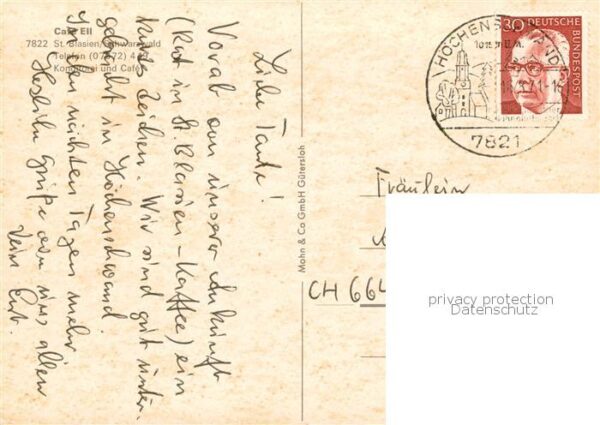 Café Ell
7822 St. Blasien/Schwarzwald
Telefon (07672) 4
Konditorei und Café
Liebe Tante!
Vorab von unserer Ankunft
(Rast in St. Blasien - Kaffee) ein
Zeichen. Wir sind gut unter-
gebracht in Höchenschwand.
In den nächsten Tagen mehr
Herzliche Grüße von uns allen
Dein
Mohn & Co GmbH Gütersloh
HÖCHENSCHWAND
7821
30 DEUTSCHE
BUNDESPOST
Fräulein
CH 664
privacy protection
Datenschutz